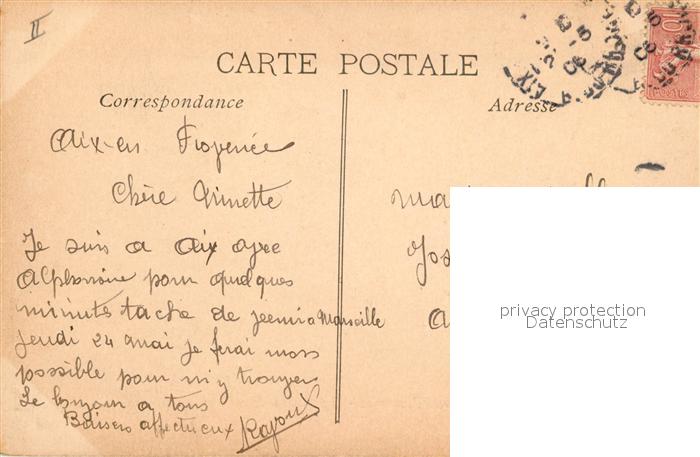 II
CARTE POSTALE
Correspondance
Adresse
Aix-en Provence
Chère Ninette
Je suis a Aix avec
Alphonsine pour quelques
minutes tache de venir a Marseille
jeudi 24 mai je ferai mon
possible pour m'y trouver
Le bonjour a tous
Baisers affectueux
10
POSTES
privacy protection
Datenschutz